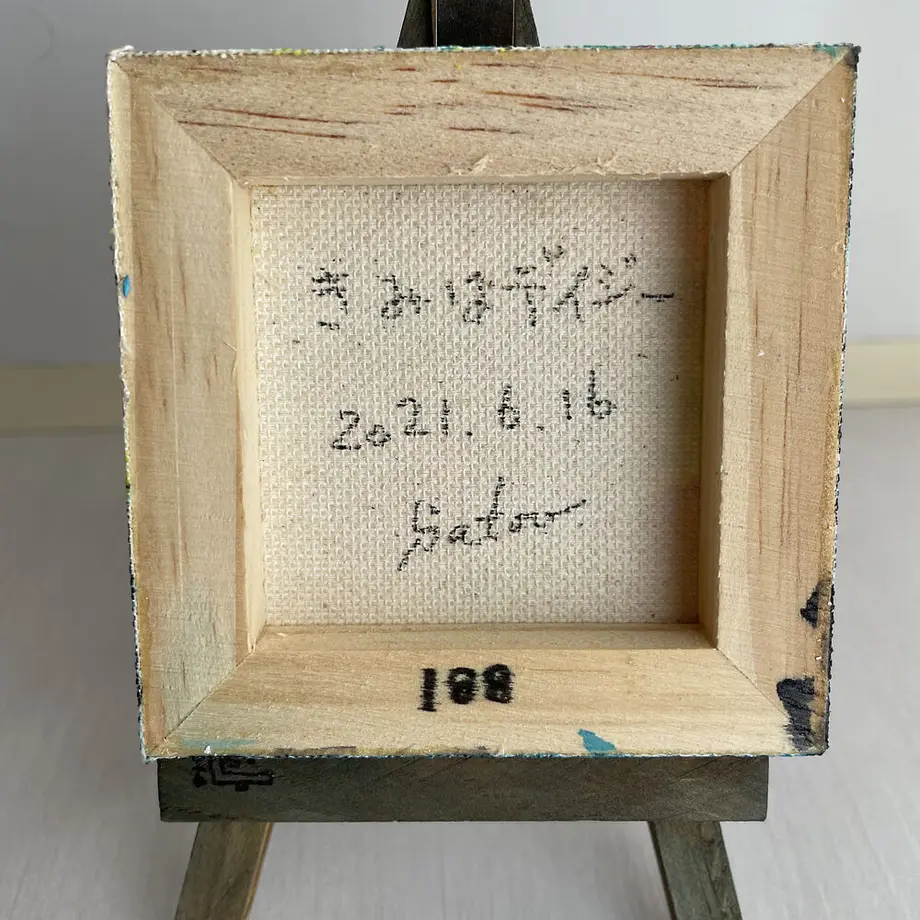 きみはデイジー
2021.6.16
188